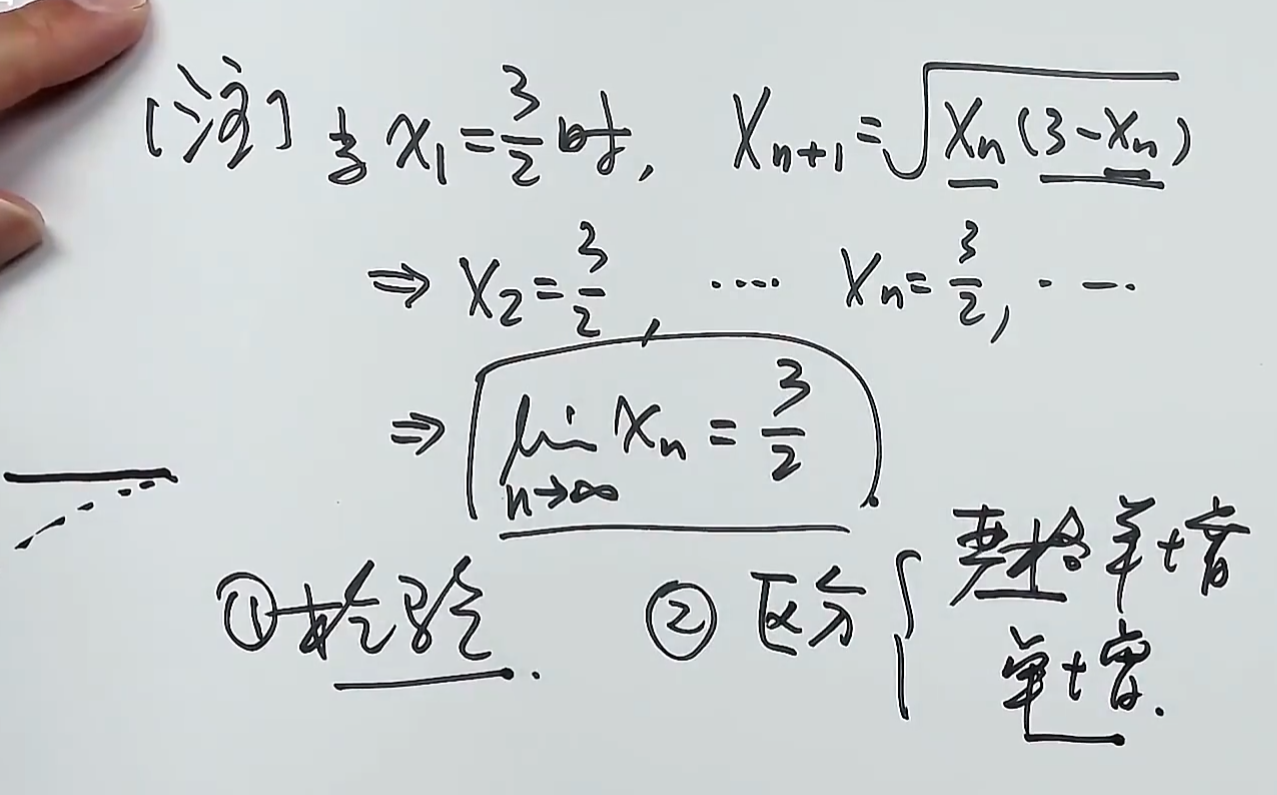 [注] 当 x₁ = 3/2 时, Xₙ₊₁ = √(Xₙ(3-Xₙ))
⇒ X₂ = 3/2, ···· Xₙ = 3/2, ·····
⇒ lim_{n→∞} xₙ = 3/2
① 检验. ② 区分 { 严格单增
单增.